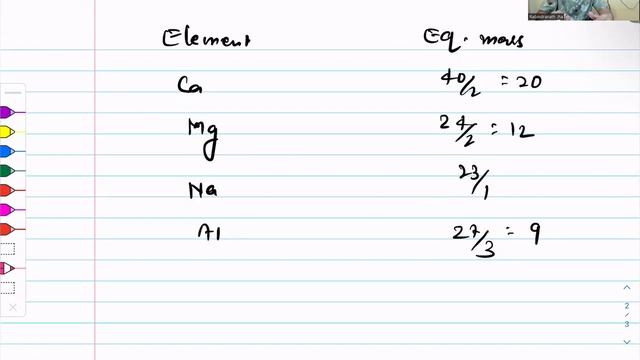 Element Eq. mass
Ca 40/2 = 20
Mg 24/2 = 12
Na 23/1
Al 27/3 = 9
2
/
3